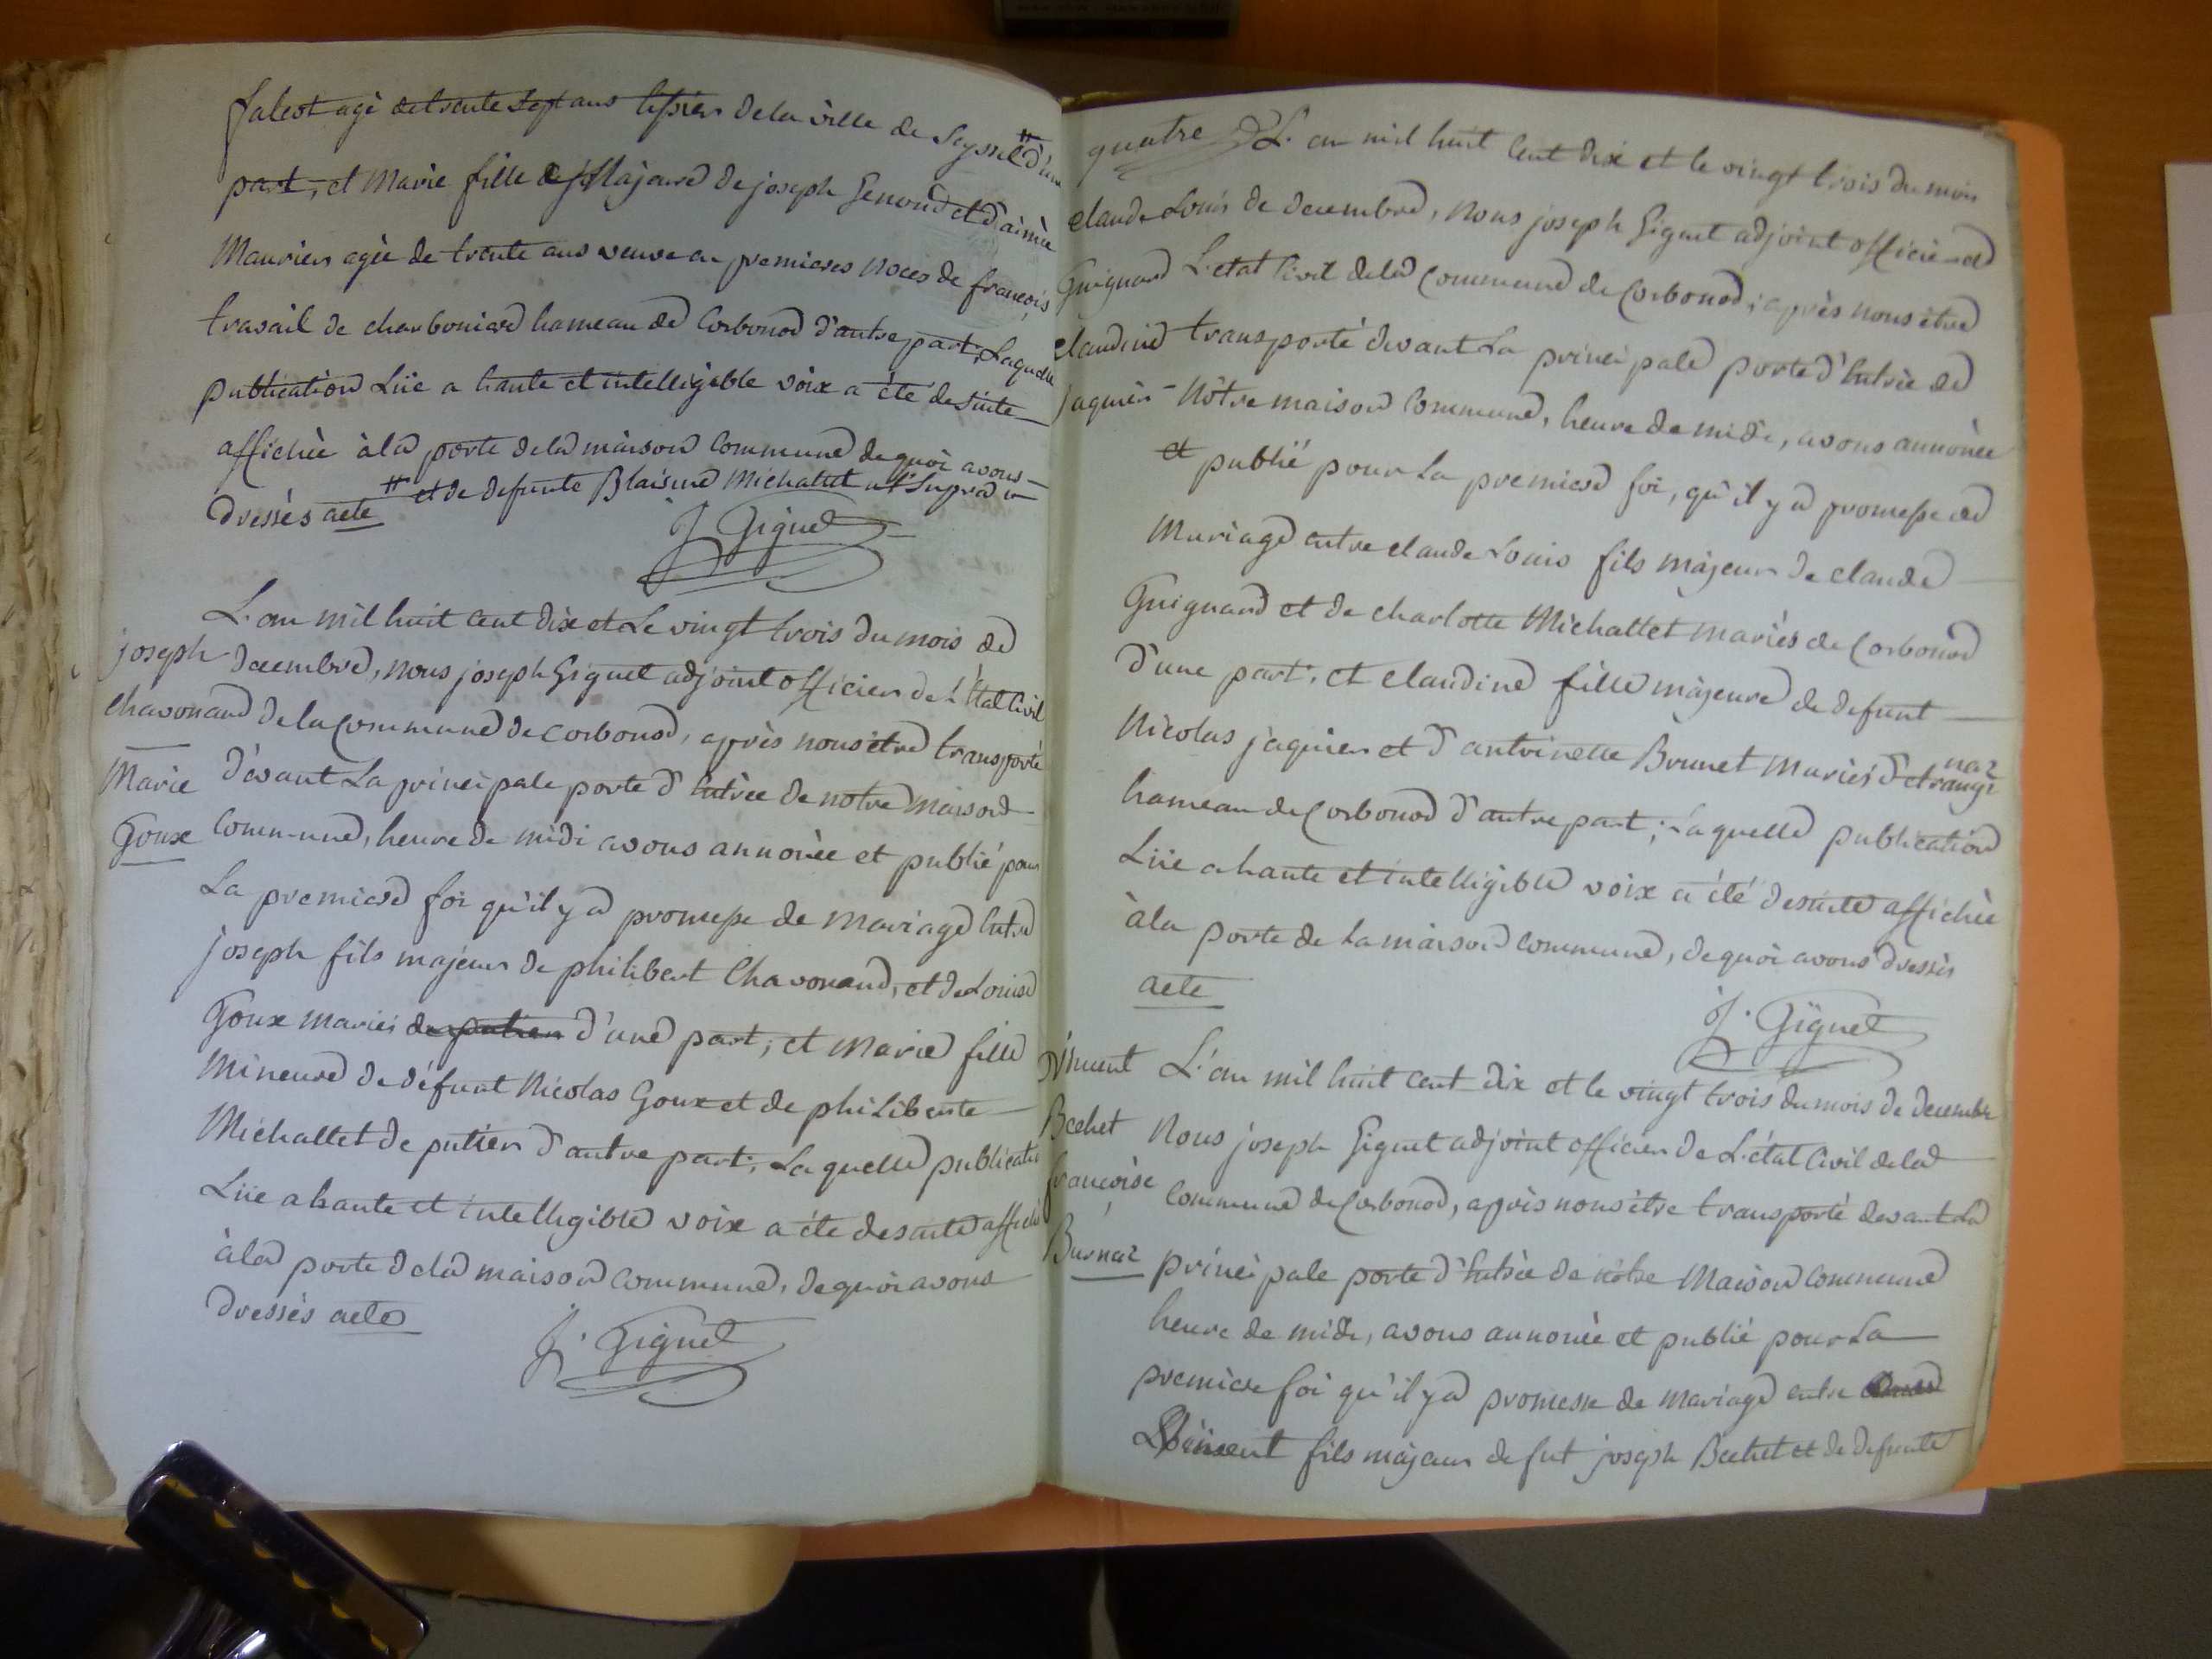 falcot agé de trente sept ans tissier de la ville de Seyssel # d'une
part, et Marie fille Majeure de joseph Genoud et d'aimée
Maurier agée de trente ans veuve en premieres noces de françois
travail de charboniere hameau de Corbonod d'autre part, Laquelle
publication Lüe a haute et intelligible voix a été de suite
affichée à la porte de la maison Commune de quoi avons
dressés acte # et de defunte Blaisine Michallet ut Supra
J Giguet
L'an mil huit Cent dix et Le vingt trois du mois de
joseph Decembre, nous joseph Giguet adjoint officier de l'Etat Civil
Chavonand de la Commune de Corbonod, après nous être transporté
Marie dévant La principale porte d'Entrée de notre maison
Goux Commune, heure de midi avons annoncée et publié pour
La premiere foi qu'il y a promesse de mariage Entre
joseph fils majeur de philibert Chavonand, et de Louise
Goux mariés de putier d'une part, et Marie fille
Mineure de défunt Nicolas Goux et de philiberte
Michallet de putier d'autre part, Laquelle publication
Lüe a haute et intelligible voix a éte de suite affichée
à la porte de la maison Commune, de quoi avons
dressés acte
J. Giguet
quatre L'an mil huit Cent dix et le vingt trois du mois
claude Louis de decembre, nous joseph Giguet adjoint officier de
Guignard L'etat Civil de la Commune de Corbonod, après nous être
claudine transporté devant La principale porte d'Entrée de
jaquier Nôtre maison Commune, heure de midi, avons annoncée
et publié pour La premiere foi, qu'il y a promesse de
Mariage entre claude Louis fils majeur de claude
Guignard et de charlotte Michallet mariés de Corbonod
d'une part, et claudine fille majeure de defunt
Nicolas jaquier et d'antoinette Brunet mariés d'etrangi
naz
hameau de Corbonod d'autre part; Laquelle publication
Lüe a haute et intelligible voix a été de suite affichée
à la porte de la maison Commune, de quoi avons dressés
acte
J. Giguet
Vincent L'an mil huit cent dix et le vingt trois du mois de decembre
Bechet Nous joseph Giguet adjoint officier de L'état Civil de la
françoise Commune de Corbonod, après nous être transporté devant La
Burnaz principale porte d'Entrée de nôtre Maison Commune
heure de midi, avons annoncée et publié pour La
premiere foi qu'il y a promesse de mariage entre
Vincent fils majeur de fut joseph Bechet et de defunte